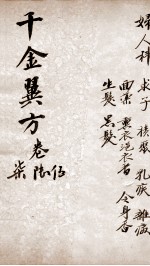 婦人科 求子 積聚 乳疾 雜病
面藥 熏衣浥衣香 令身香
生髮 黑髮
千金翼方 卷伍
陸
柒